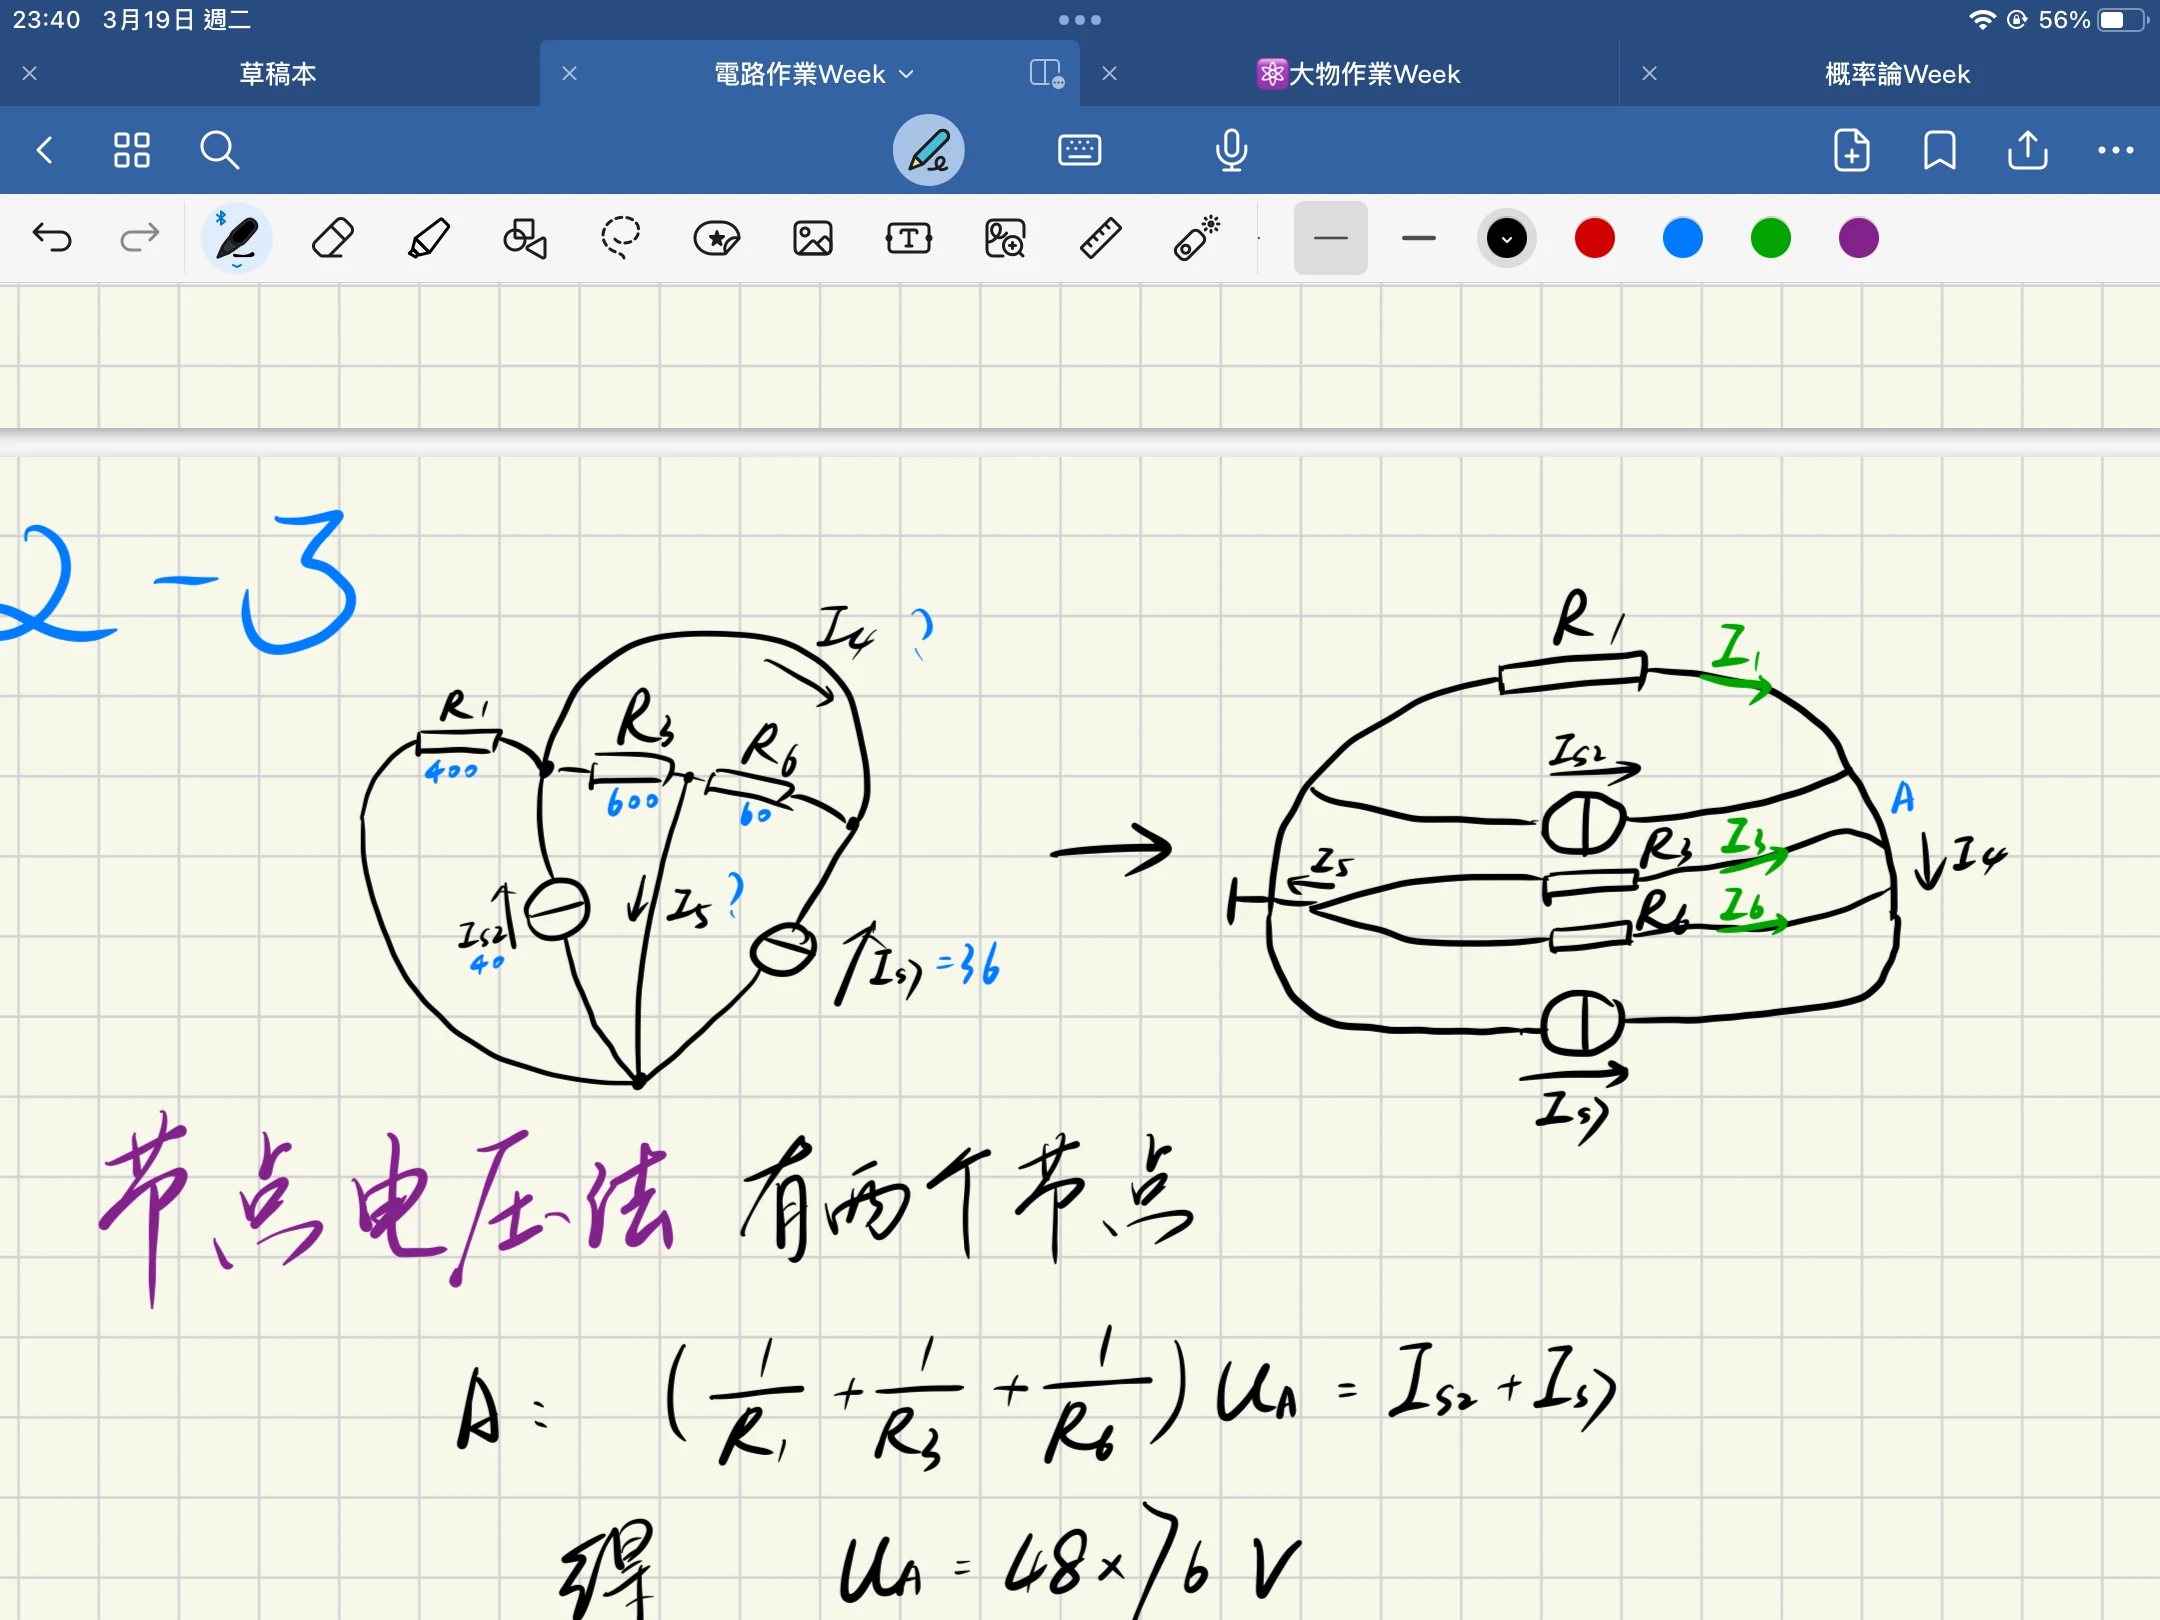 23:40 3月19日 週二
56%
草稿本
電路作業Week
大物作業Week
概率論Week
2-3
I4 ?
R1
400
R3
600
R6
60
Is2
40
I5 ?
Is7 =36
R1
I1
Is2
A
R3
I3
I5
I4
R6
I6
Is7
节点电压法 有两个节点
A: (1/R1 + 1/R3 + 1/R6) UA = Is2 + Is7
得 UA = 48×76 V